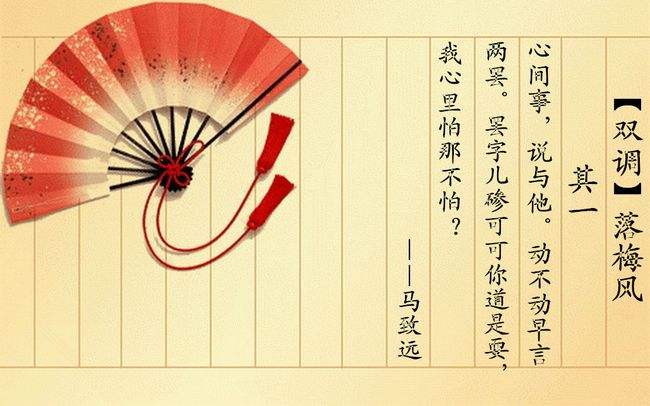 【双调】落梅风
其一
心间事，说与他。动不动早言
两罢。罢字儿碜可可你道是耍，
我心里怕那不怕？
——马致远